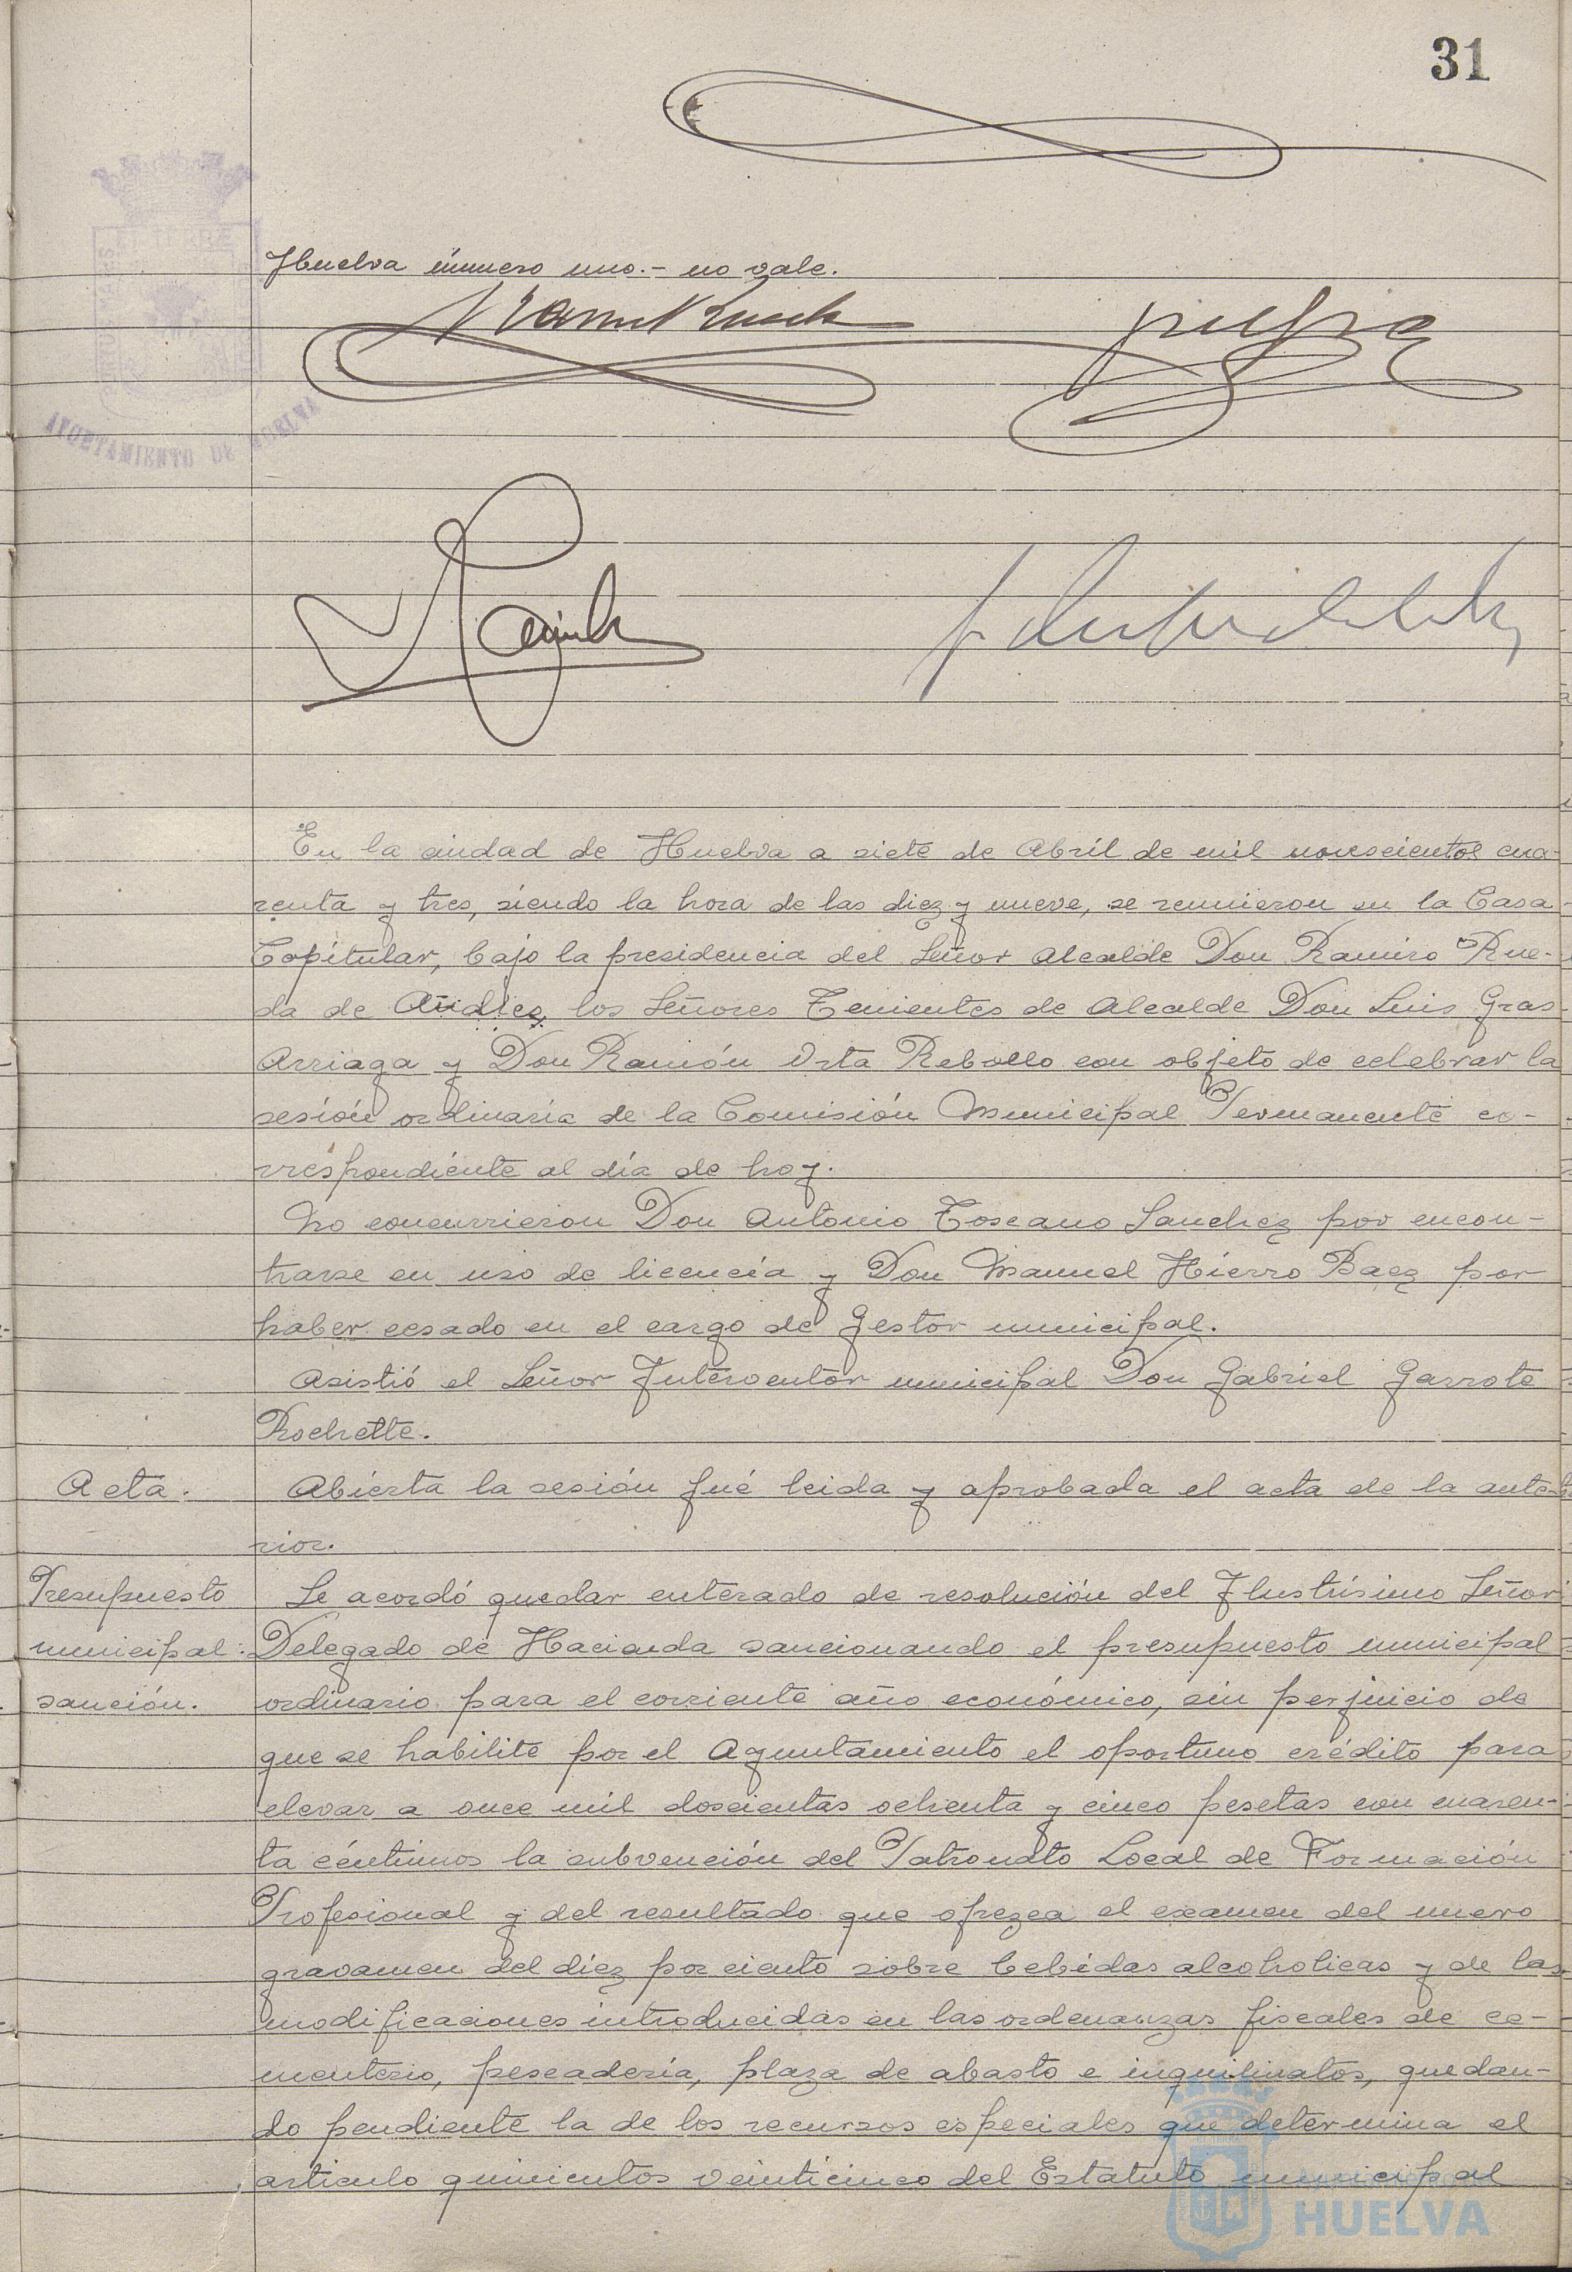 31
Huelva número uno.- no vale.
AYUNTAMIENTO DE HUELVA
En la ciudad de Huelva a siete de Abril de mil novecientos cua-
renta y tres, siendo la hora de las diez y nueve, se reunieron en la Casa
Capitular, bajo la presidencia del Señor Alcalde Don Ramiro Rue-
da de Andies, los Señores Tenientes de Alcalde Don Luis Gras
Arriaga y Don Ramón Orta Rebollo con objeto de celebrar la
sesión ordinaria de la Comisión Municipal Permanente co-
rrespondiente al día de hoy.
No concurrieron Don Antonio Toscano Sanchez por encon-
trarse en uso de licencia y Don Manuel Hierro Baez por
haber cesado en el cargo de Gestor municipal.
Asistió el Señor Interventor municipal Don Gabriel Garrote
Rochette.
Acta.
Abierta la sesión fué leida y aprobada el acta de la ante-
rior.
Presupuesto
municipal:
sanción.
Se acordó quedar enterado de resolución del Ilustrísimo Señor
Delegado de Hacienda sancionando el presupuesto municipal
ordinario para el corriente año económico, sin perjuicio de
que se habilite por el Ayuntamiento el oportuno crédito para
elevar a once mil doscientas ochenta y cinco pesetas con cuaren-
ta céntimos la subvención del Patronato Local de Formación
Profesional y del resultado que ofrezca el examen del nuevo
gravamen del diez por ciento sobre bebidas alcoholicas y de las
modificaciones introducidas en las ordenanzas fiscales de ce-
menterio, pescadería, plaza de abasto e inquilinatos, quedan-
do pendiente la de los recursos especiales que determina el
articulo quinientos veinticinco del Estatuto municipal
HUELVA